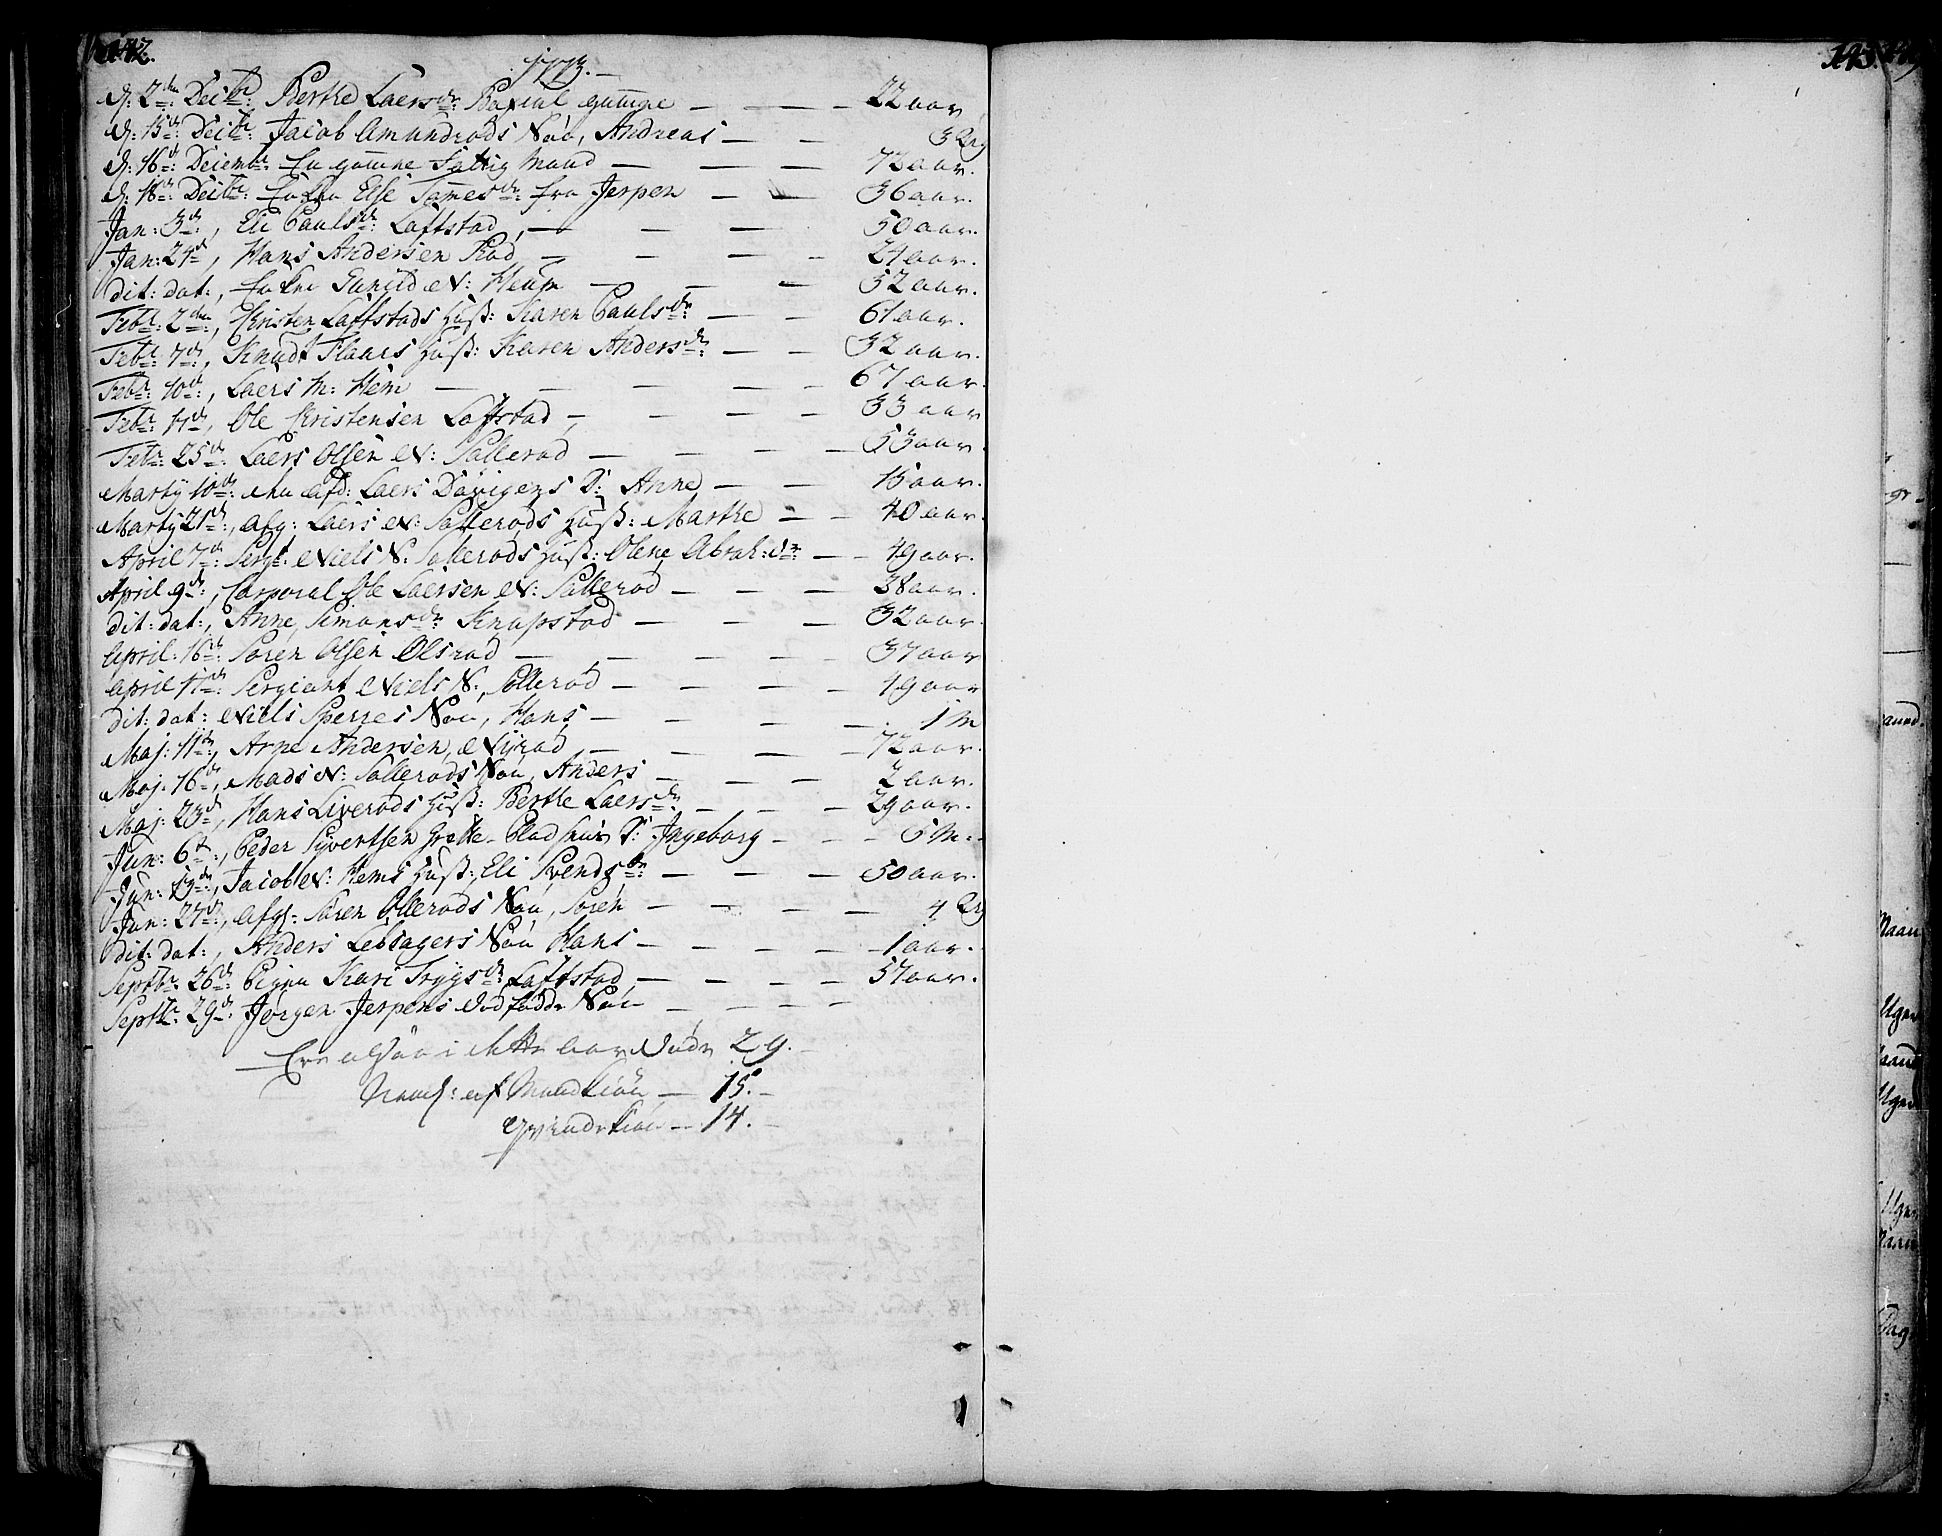 142.
1773.
d: 2den Decbr: Berthe Laersdr: gamme 22 aar
d: 15de Decbr: Jacob Amundrøds Søn, Andreas 3 Ug
d: 16de Decembr: gamme Fattig Mand 72 aar.
d: 18de Decbr: Else Jamesdr: fra Jerpen 36 aar.
Jan: 3de, Eli Paulsdr: Laftstad, 50 aar.
Jan: 24de, Hans Andersen Rød 24 aar.
dit: dat:, Gunild N: Heum 32 aar.
Febr: 2den, Kristen Laftstads Huß: Karen Paulsdr: 61 aar.
Febr: 7de, Knudt Flaaes Huß: Karen Andersdr: 32 aar.
Febr: 10de, Laers M: Hem 67 aar.
Febr: 17de, Ole Kristensen Laftstad, 33 aar
Febr: 25de: Laers Olsen N: Sallerød 53 aar.
Martij 10de: Laers D: Anne 15 aar.
Martij 21de:, Afg: Laers N: Sallerøds Huß: Marthe 40 aar.
April 7de: Sergt: Niels N: Sallerøds Huß: Olene Abrah:dr: 49 aar.
April 9de:, Corporal Ole Laersen N: Sallerød 38 aar.
dit: dat:, Anne Simonsdr: Knapstad 32 aar.
April: 16de: Søren Olsen Olsrød 37 aar
April 17de: Sergiant Niels N:, Sallerød 49 aar
dit: dat: Niels Sperres Søn, Hans 1 M
Maj: 11de:, Arne Andersen, Nyrød, 72 aar.
Maj: 16de, Mads N: Sallerøds Søn, Anders 2 aar.
Maj: 23de, Hans Liverøds Huß: Berthe Laersdr: 29 aar.
Jun: 6te:, Peder Syvertsen D: Ingeborg 5 M:
Jun: 19de:, Jacob N: Hems Huß:, Eli Svendsdr: 50 aar.
Jun: 27de:, Afg: Søren Ollerøds Søn, Søren 4 Ug
dit: dat:, Anders Lebsagers Søn Hans 1 aar.
Septbr: 26de: Pigen Kari Trygsdr: Laftstad, 57 aar.
Septbr: 29de: Jørgen Jerpens Dødfødde Søn
Ere altsaa i dette Aar Døde 29.
Navl: af Mandkiøn 15.
Qvindekiøn 14.
143.